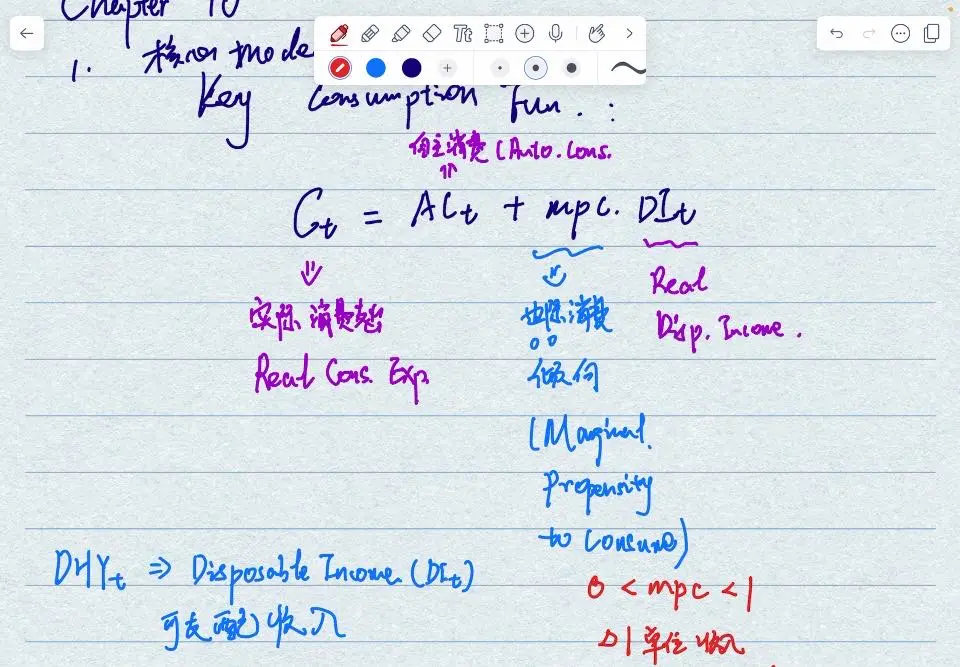 Chapter 10
1. 核心 mode
Key Consumption Fun. :
自主消费 (Auto. Cons.
⇑
Ct = ACt + mpc. DIt
⇓
实际消费支出
Real Cons. Exp
⇓
边际消费
倾向
(Marginal
Propensity
to Consume)
Real
Disp. Income.
DHYt ⇒ Disposable Income (DIt)
可支配收入
0 < mpc < 1
△1单位收入
Tt